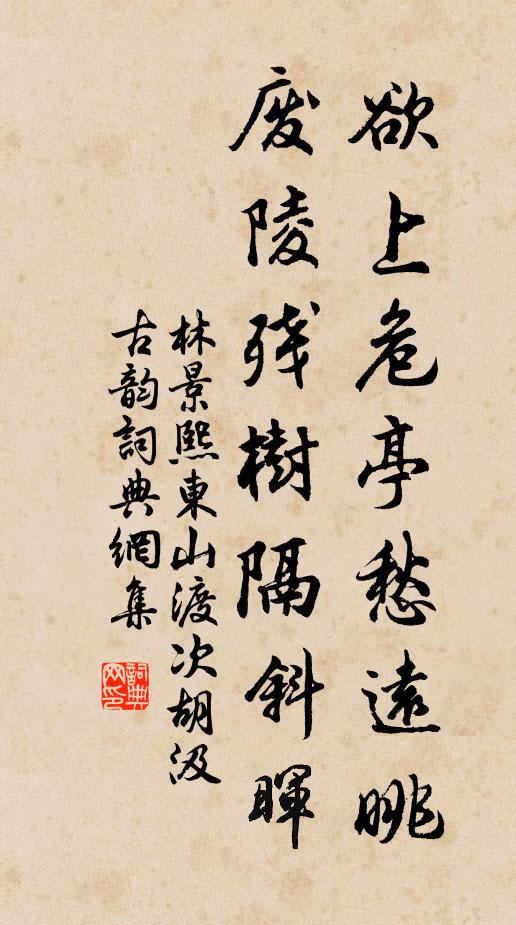 欲上危亭愁遠眺
廢陵殘樹隔斜暉
林景熙東山渡次胡汲
古韵詞典網集
詞典網印